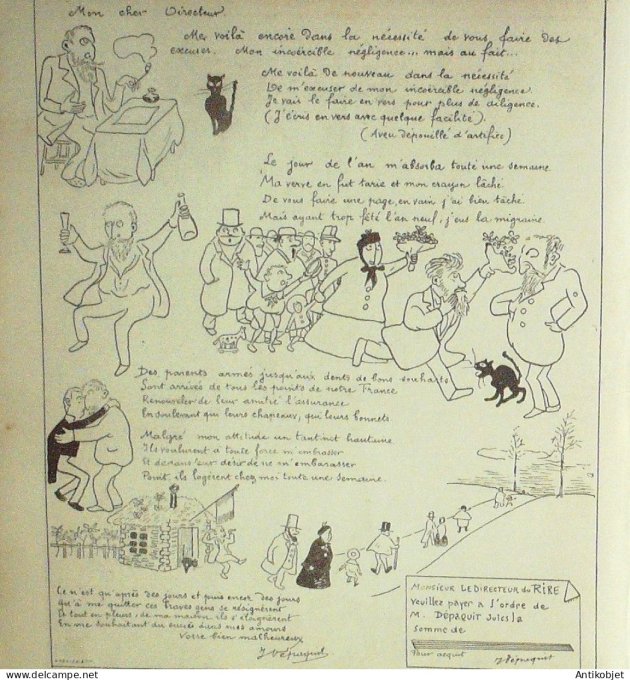 Mon cher Directeur
Me voilà encore dans la nécessité de vous faire des
excuses. Mon incoërcible négligence... mais au fait...
Me voilà de nouveau dans la nécessité
De m'excuser de mon incoërcible négligence.
Je vais le faire en vers pour plus de diligence.
(J'écris en vers avec quelque facilité).
(Aveu dépouillé d'artifice)
Le jour de l'an m'absorba toute une semaine
Ma verve en fut tarie et mon crayon lâché.
De vous faire une page, en vain j'ai bien tâché.
Mais ayant trop fêté l'an neuf, j'eus la migraine
Des parents armés jusqu'aux dents de bons souhaits
Sont arrivés de tous les points de notre France
Renouveler de leur amitié l'assurance
En soulevant qui leurs chapeaux, qui leurs bonnets.
Malgré mon attitude un tantinet hautaine
Ils voulurent à toute force m'embrasser
Et dans leur désir de ne m'embarasser
Point, ils logèrent chez moi toute une semaine.
Ce n'est qu'après des jours et puis encor des jours
Qu'à me quitter ces braves gens se résignèrent
Et tout en pleurs, de ma maison ils s'éloignèrent
En me souhaitant du succès dans mes amours
Votre bien malheureux
J Dépaquit
MONSIEUR LE DIRECTEUR du RIRE
Veuillez payer à l'ordre de
M. DÉPAQUIT Jules la
somme de
Pour acquit
J Dépaquit
© Antikobjet